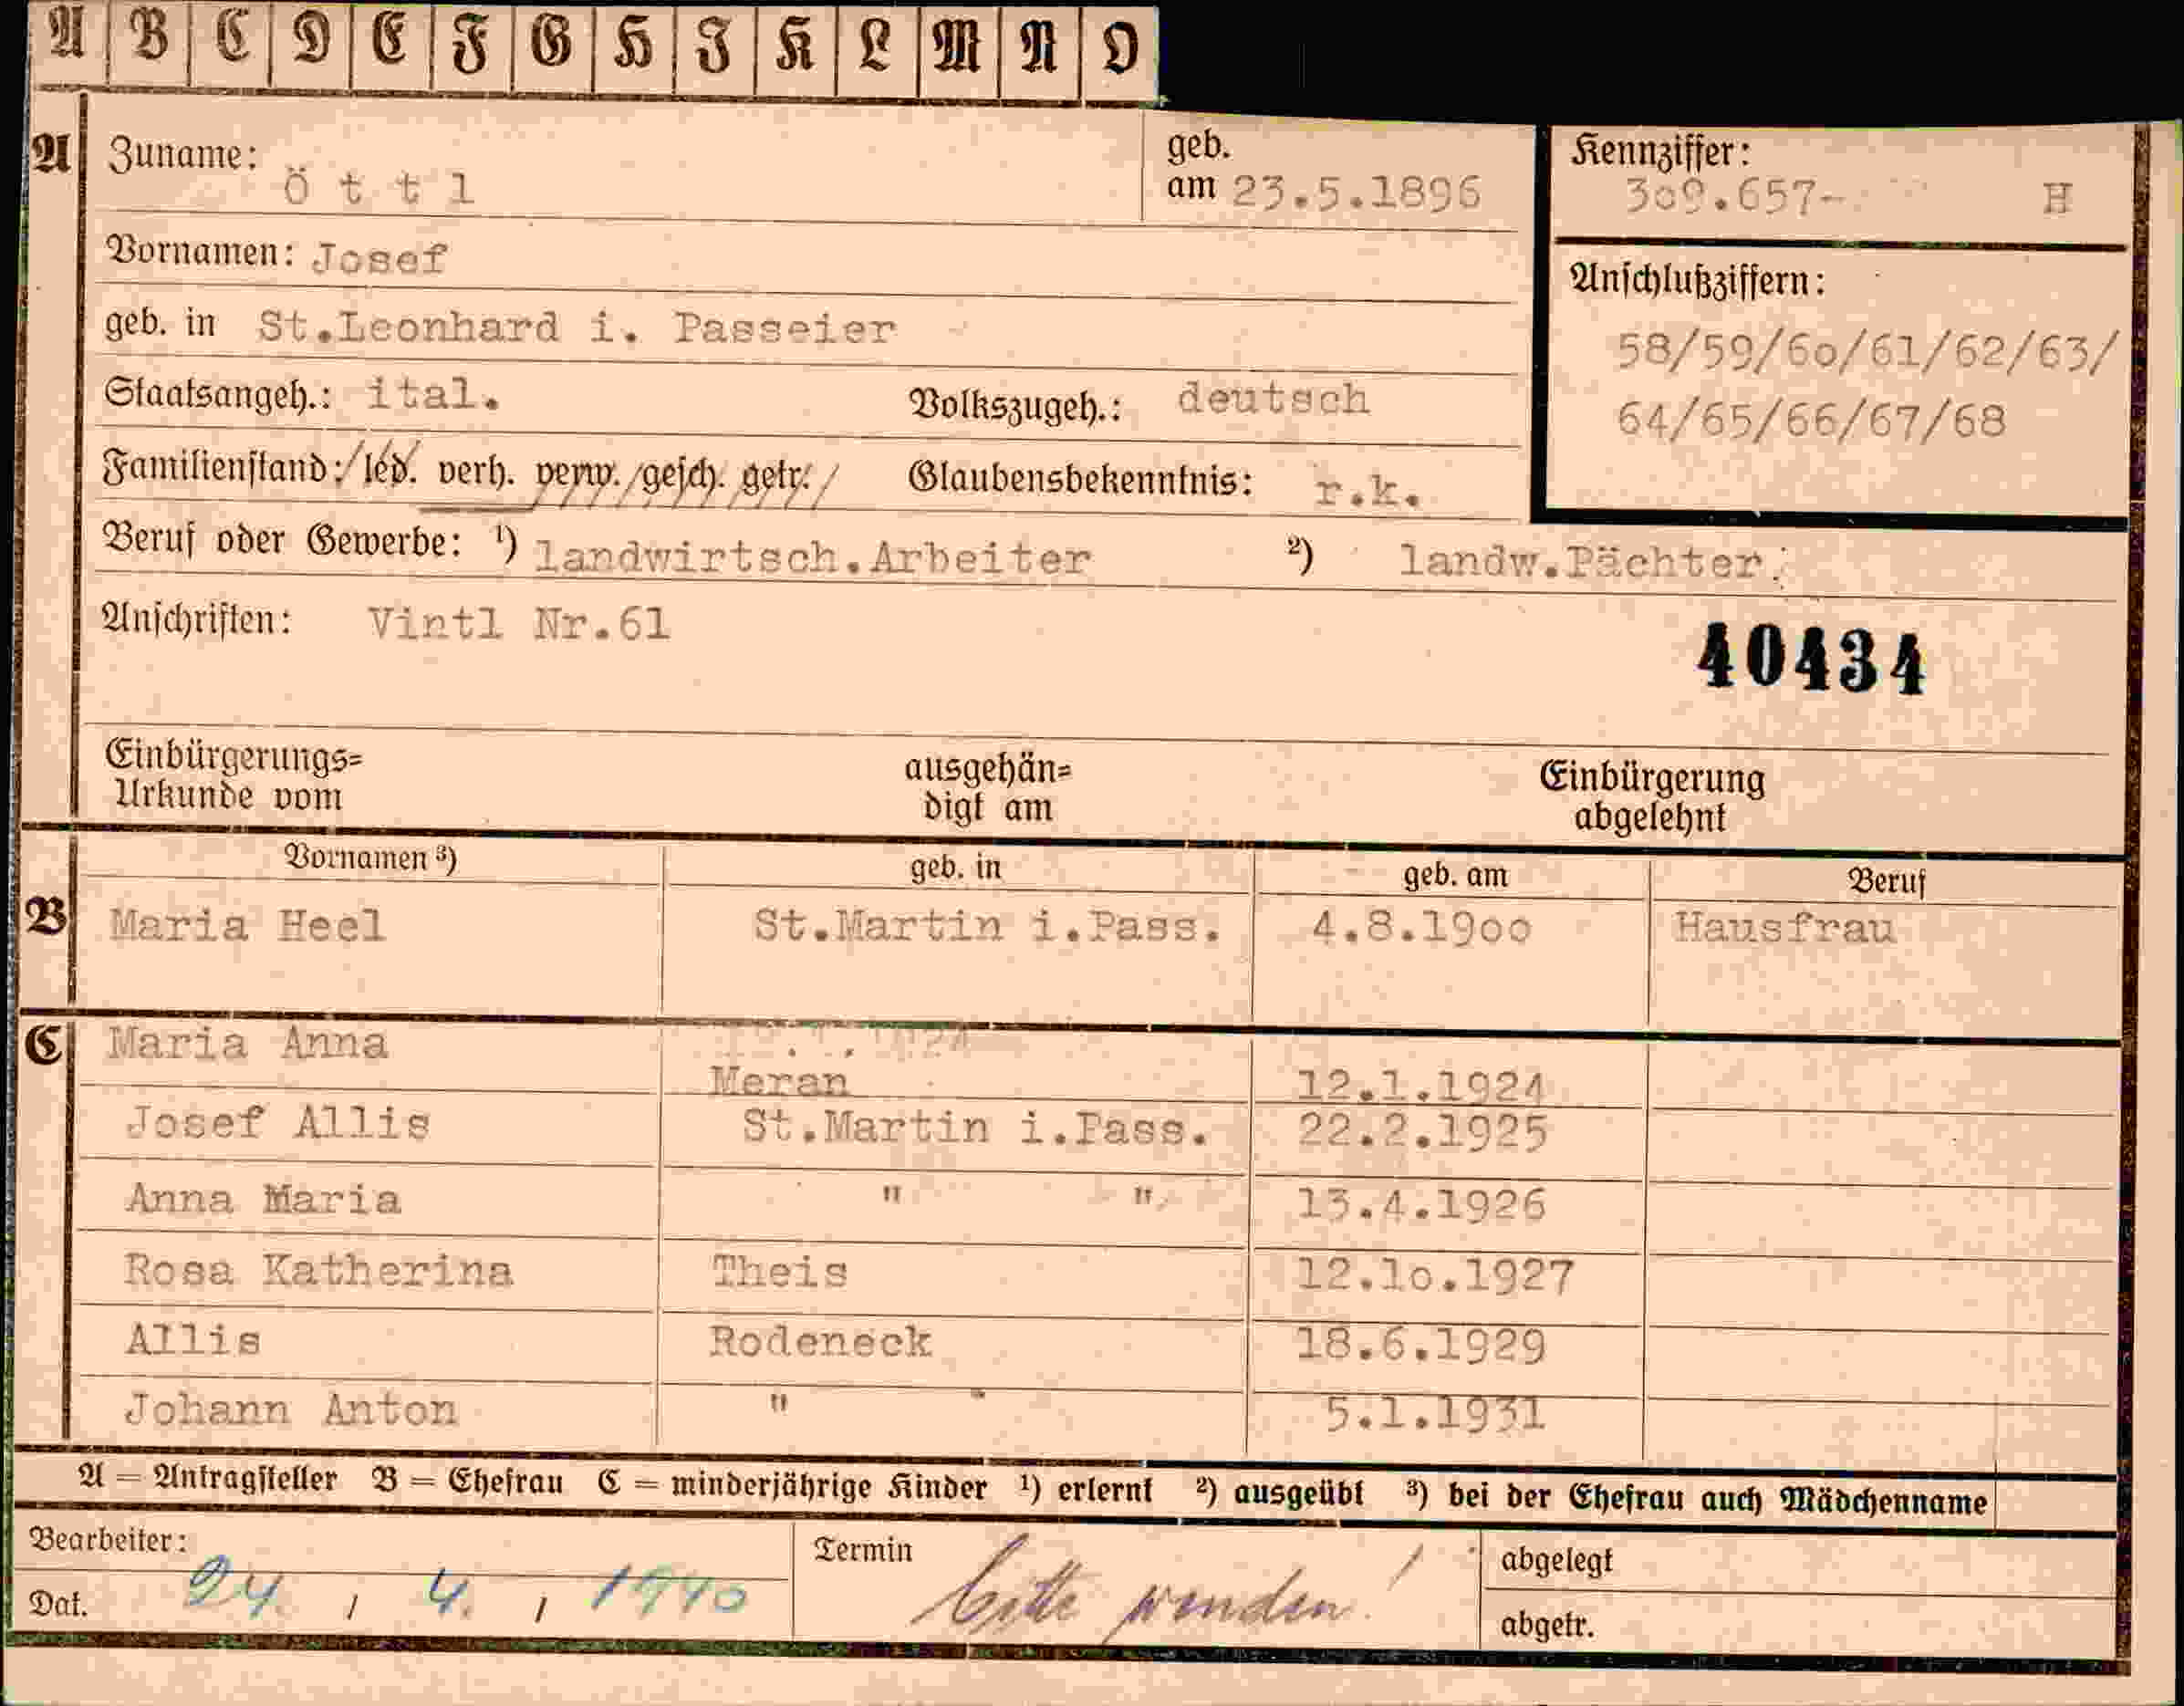 A B C D E F G H I K L M N O
A Zuname: Öttl geb. am 23.5.1896 Kennziffer: 3o9.657- H
Vornamen: Josef
geb. in St.Leonhard i. Passeier Anschlußziffern:
58/59/6o/61/62/63/
64/65/66/67/68
Staatsangeh.: ital. Volkszugeh.: deutsch
Familienstand: led. verh. verw. gesch. getr. Glaubensbekenntnis: r.k.
Beruf oder Gewerbe: ¹) landwirtsch.Arbeiter ²) landw.Pächter.
Anschriften: Vintl Nr.61
40434
Einbürgerungs=
Urkunde vom
ausgehän=
digt am
Einbürgerung
abgelehnt
Vornamen ³) geb. in geb. am Beruf
B Maria Heel St.Martin i.Pass. 4.8.19oo Hausfrau
C Maria Anna Meran 12.1.1924
Josef Allis St.Martin i.Pass. 22.2.1925
Anna Maria " " 13.4.1926
Rosa Katherina Theis 12.1o.1927
Allis Rodeneck 18.6.1929
Johann Anton " " 5.1.1931
A = Antragsteller B = Ehefrau C = minderjährige Kinder ¹) erlernt ²) ausgeübt ³) bei der Ehefrau auch Mädchenname
Bearbeiter:
Dat. 24. / 4. / 1940
Termin bitte wenden!
abgelegt
abgetr.